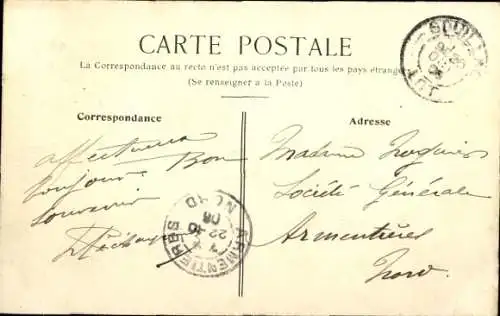 CARTE POSTALE
La Correspondance au recto n'est pas acceptée par tous les pays étrangers
(Se renseigner à la Poste)
Correspondance
Adresse
affectueux
Bon
toujours
souvenir
Madame
Société Générale
Armentières
Nord
ARMENTIERES
NORD
22 10
08
LOT